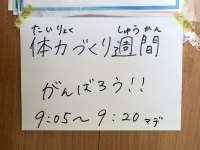 たいりょく しゅうかん
体力づくり週間
がんばろう!!
9:05〜9:20マデ